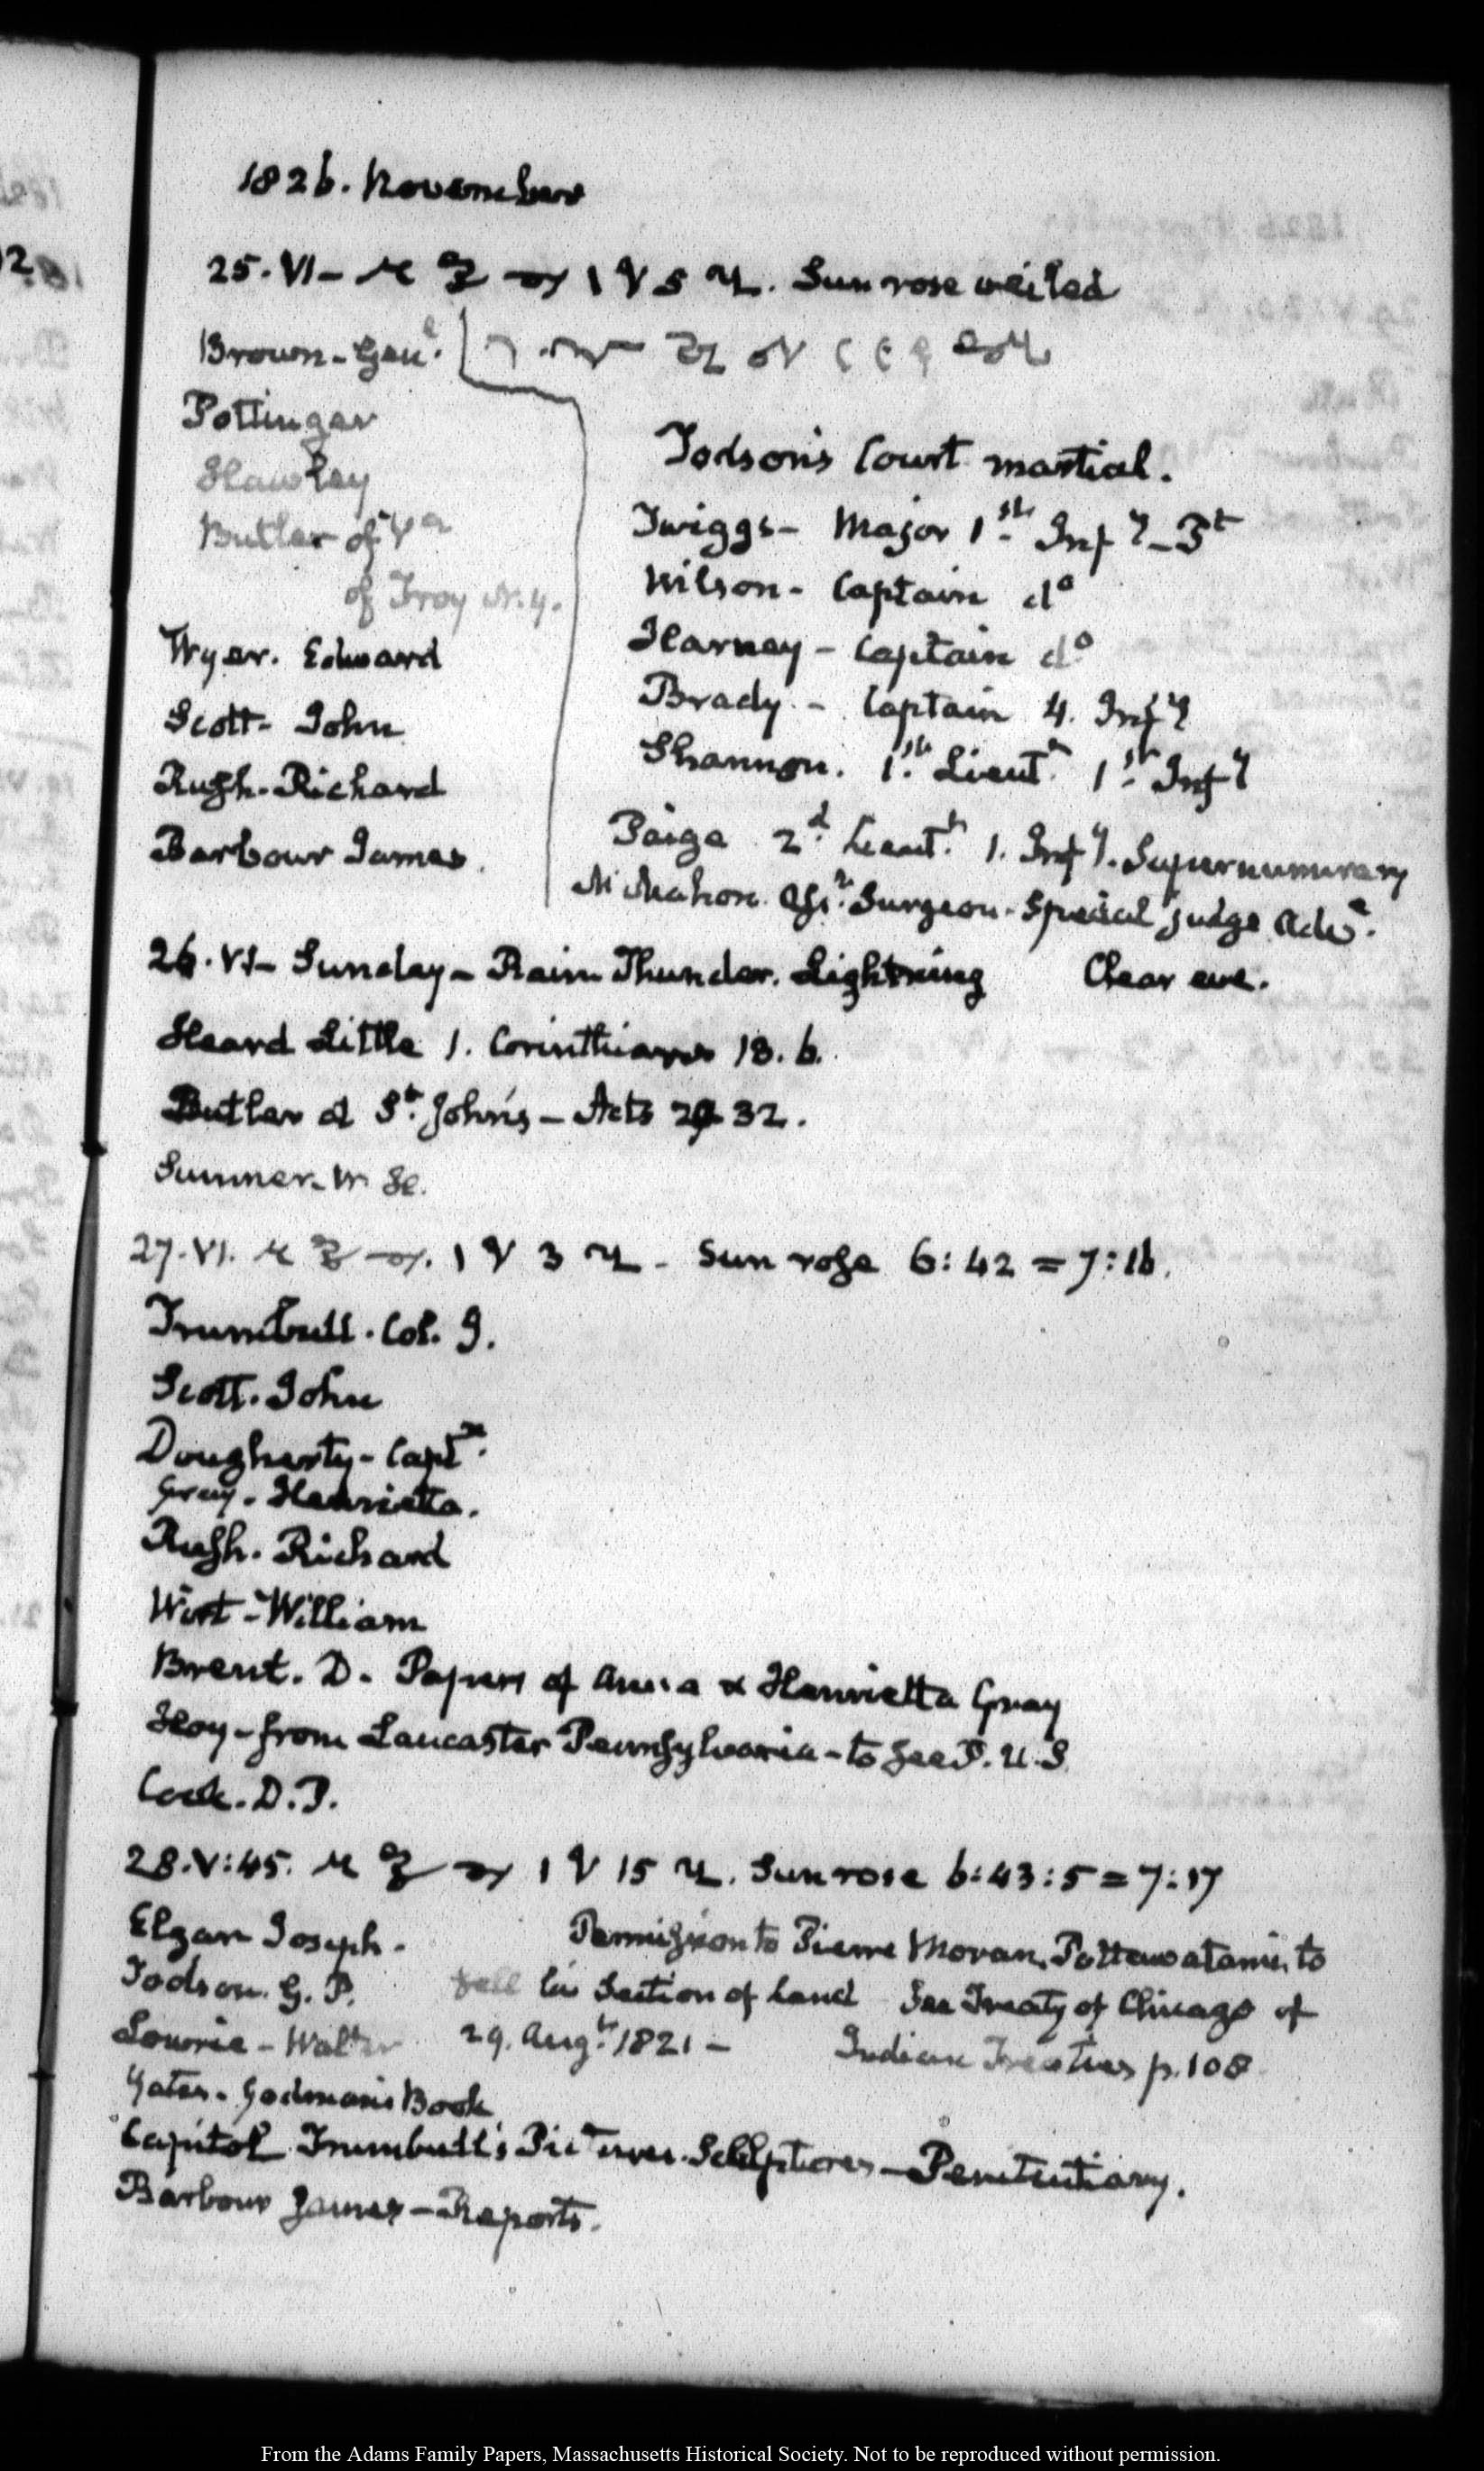 1826. November
25. VI– Sun rose veiled
Brown – Gen.l
Pottinger
Hawley
Butler of Va
of Troy N.Y.
Wyer. Edward
Scott – John
Rush – Richard
Barbour James.
Todson's Court martial.
Twiggs – Major 1.st Inf.y – Pt
Wilson – Captain do
Harney – Captain do
Brady – Captain 4. Inf.y
Shannon. 1.st Lieut.t 1.st Inf.y
Paige 2.d Lieut.t 1. Inf.y. Supernumerary
McMahon. Asst. Surgeon – Special judge Adve.
26. VI– Sunday – Rain Thunder. Lightning Clear eve.
Heard Little 1. Corinthians 13. 6.
Butler at St. John's – Acts 32.
Sumner – W. H.
27. VI. 1 3 – Sun rose 6:42 = 7:16.
Trumbull. Col. J.
Scott. John
Dougherty – Captn.
Gray. Henrietta.
Rush. Richard
Wirt – William
Brent. D. Papers of Anna & Henrietta Gray
Hoy – from Lancaster Pennsylvania – to see P. U. S.
Cook. D. P.
28. V:45. 1 15 Sun rose 6:43:5 = 7:17
Elgar Joseph. Permission to Pierre Moran, Pottawatamie, to
Todson. G. P. sell his Section of Land See Treaty of Chicago of
Lowrie – Walter 29. Augt. 1821 – Indian Treaties p. 108
Yates. Godman's Book
Capitol Trumbull's Pictures. Sculptures – Penitentiary.
Barbour James – Reports.
From the Adams Family Papers, Massachusetts Historical Society. Not to be reproduced without permission.